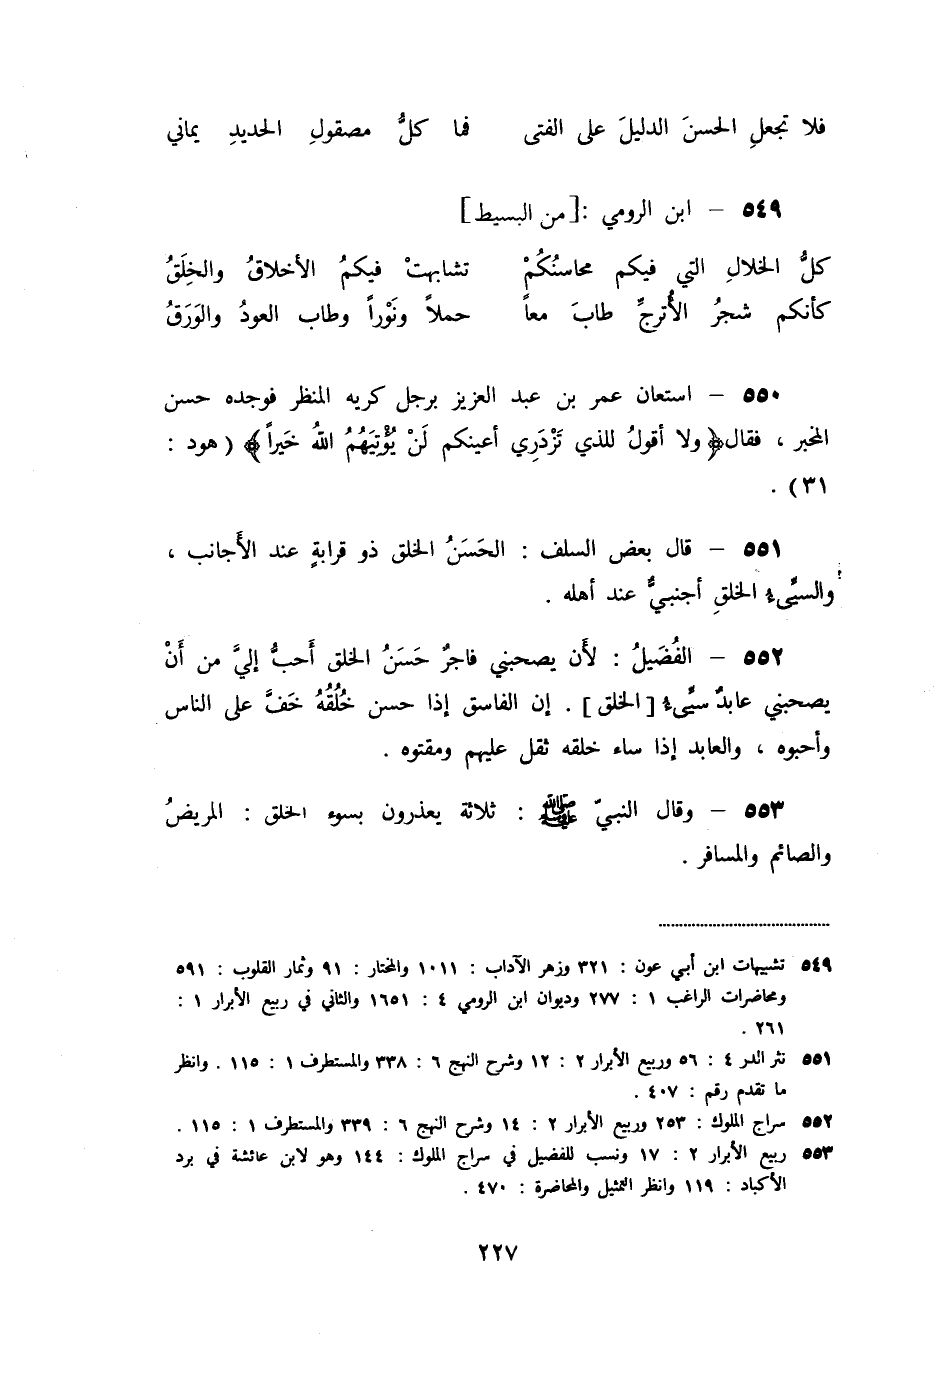 فلا تجعلِ الحسنَ الدليلَ على الفتى فما كلُّ مصقولِ الحديدِ يماني
٥٤٩ – ابن الرومي :[من البسيط]
كلُّ الخلالِ التي فيكم محاسنُكُمْ تشابهتْ فيكمُ الأخلاقُ والخِلَقُ
كأنكم شجرُ الأُترجِّ طابَ معاً حملاً ونَوْراً وطاب العودُ والوَرَقُ
٥٥٠ – استعان عمر بن عبد العزيز برجل كريه المنظر فوجده حسن
المخبر ، فقال﴿ولا أقولُ للذي تَزْدَرِي أعينكم لَنْ يُؤْتِيَهُمُ اللهُ خَيراً﴾ (هود :
٣١) .
٥٥١ – قال بعض السلف : الحَسَنُ الخلق ذو قرابةٍ عند الأَجانب ،
والسيِّىء الخلقِ أجنبيٌّ عند أهله .
٥٥٢ – الفُضَيلُ : لأَن يصحبني فاجرٌ حَسَنُ الخلق أَحبُّ إليَّ من أَنْ
يصحبني عابدٌ سيِّىء [الخلق] . إن الفاسق إذا حسن خُلُقُهُ خَفَّ على الناس
وأحبوه ، والعابد إذا ساء خلقه ثقل عليهم ومقتوه .
٥٥٣ – وقال النبيّ ﷺ : ثلاثة يعذرون بسوء الخلق : المريضُ
والصائم والمسافر .
٥٤٩ تشبيهات ابن أبي عون : ٣٢١ وزهر الآداب : ١٠١١ والمختار : ٩١ وثمار القلوب : ٥٩١
ومحاضرات الراغب ١ : ٢٧٧ وديوان ابن الرومي ٤ : ١٦٥١ والثاني في ربيع الأبرار ١ :
٢٦١ .
٥٥١ نثر الدر ٤ : ٥٦ وربيع الأبرار ٢ : ١٢ وشرح النهج ٦ : ٣٣٨ والمستطرف ١ : ١١٥ . وانظر
ما تقدم رقم : ٤٠٧ .
٥٥٢ سراج الملوك : ٢٥٣ وربيع الأبرار ٢ : ١٤ وشرح النهج ٦ : ٣٣٩ والمستطرف ١ : ١١٥ .
٥٥٣ ربيع الأبرار ٢ : ١٧ ونسب للفضيل في سراج الملوك : ١٤٤ وهو لابن عائشة في برد
الأكباد : ١١٩ وانظر التمثيل والمحاضرة : ٤٧٠ .
٢٢٧